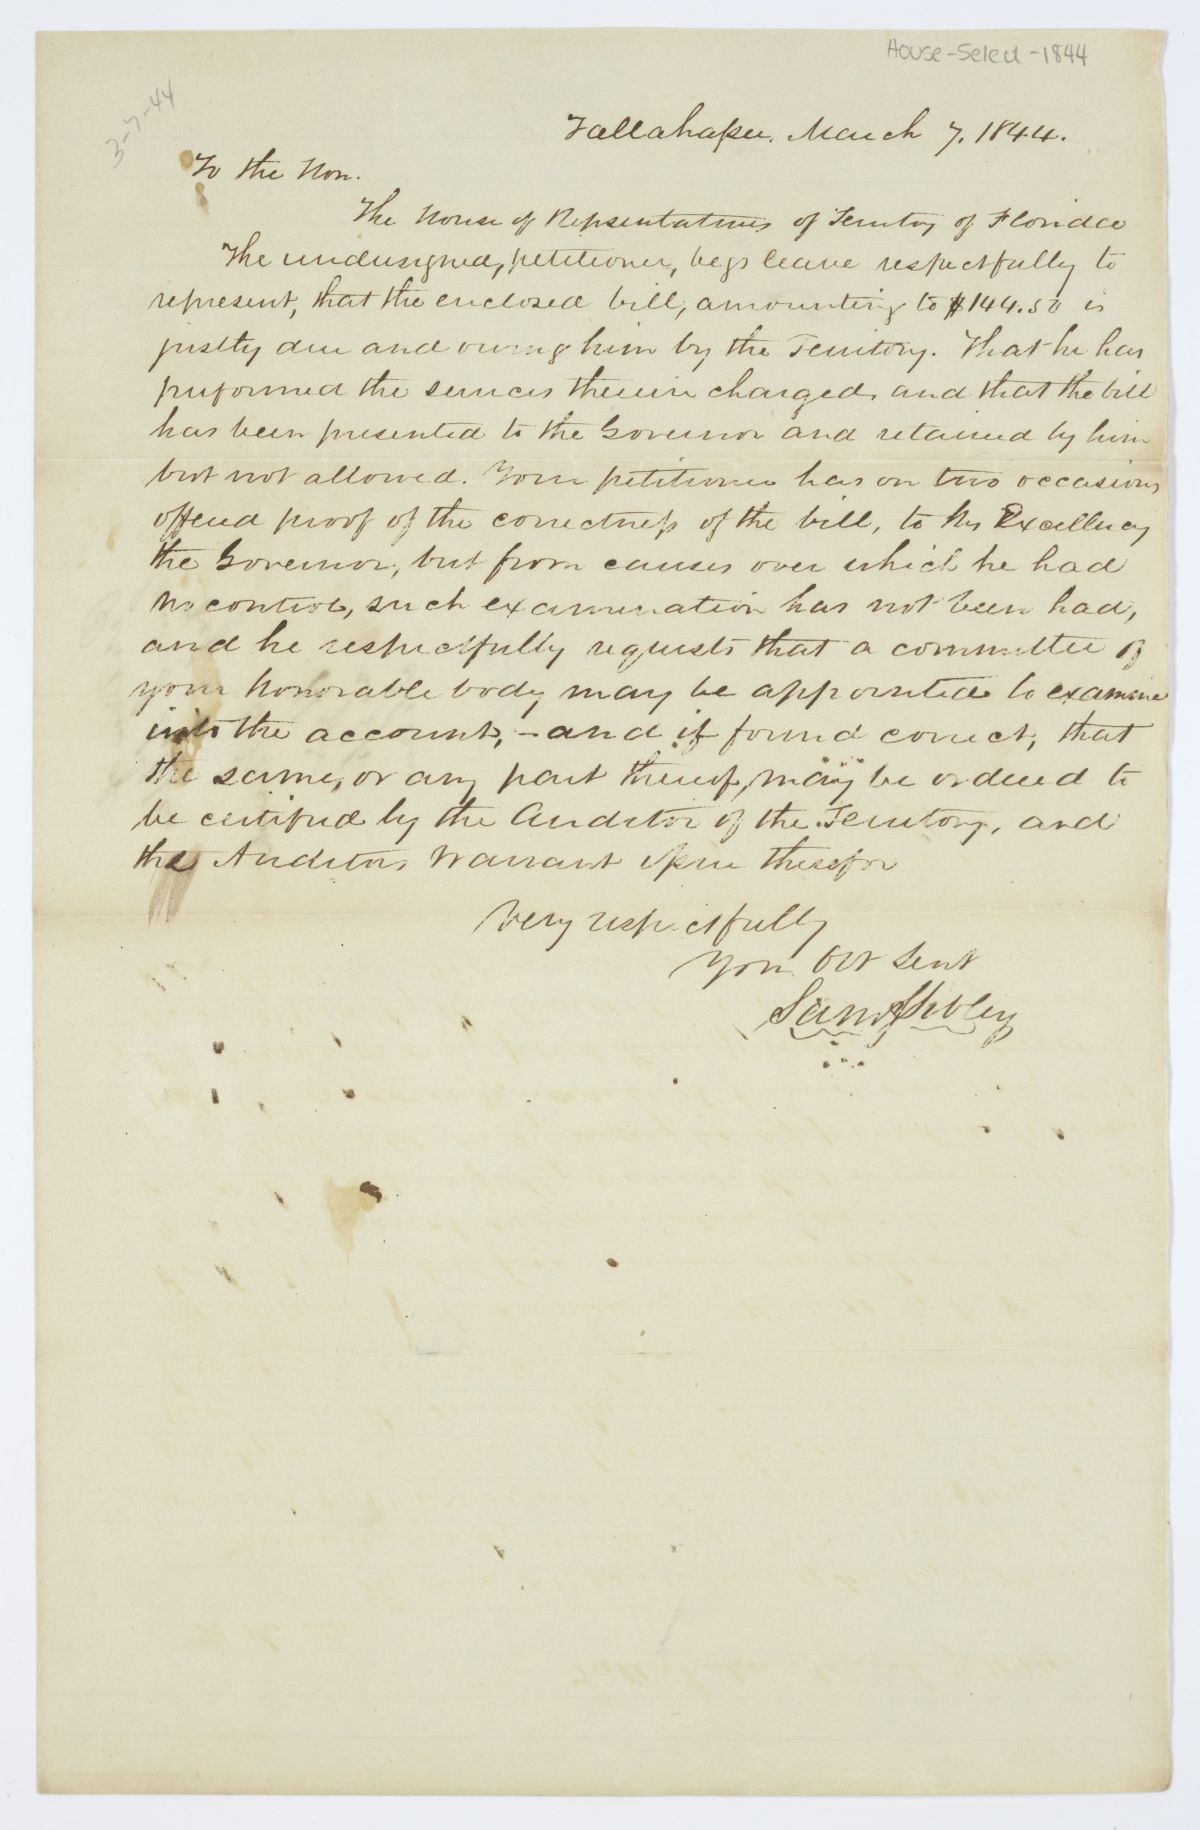 House-Select-1844
3-7-44
Tallahassee, March 7, 1844.
To the Hon.
The House of Repsentatives of Territoy of Florida
The undersigned, petitioner, begs leave respectfully to
represent, that the enclosed bill, amounting to $144.50 is
justly due and owing him by the Territory. That he has
performed the services therein charged, and that the bill
has been presented to the Governor and retained by him
but not allowed. Your petitioner has on two occasions
offered proof of the correctness of the bill, to his Excellency
the Governor, but from causes over which he had
no control, such examination has not been had,
and he respectfully requests that a committee of
your honorable body may be appointed to examine
into the account, - and if found correct, that
the same, or any part thereof, may be ordered to
be certified by the Auditor of the Territory, and
the Auditors Warrant therefor
Very respectfully
Your Obt Servt
Saml Sibley